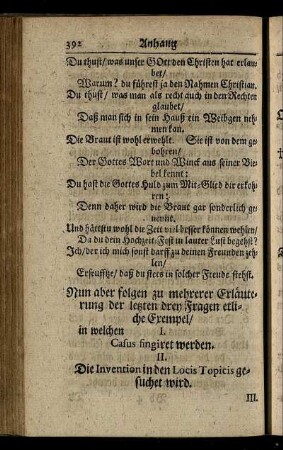 392 Anhang
Du thust/ was unser GOtt den Christen hat erlau-
bet/
Warum? du führest ja den Nahmen Christian.
Du thust/ was man als recht auch in den Rechten
glaubet/
Daß man sich in sein Hauß ein Weibgen neh-
men kan.
Die Braut ist wohl erwehlt. Sie ist von dem ge-
bohren/
Der Gottes Wort und Winck aus seiner Bi-
bel kennt:
Du hast die Gottes Huld zum Mit-Glied dir erkoh-
ren;
Denn daher wird die Braut gar sonderlich ge-
nennt.
Und hättstu wohl die Zeit viel besser können wehlen/
Da du dein Hochzeit-Fest in lauter Lust begehst?
Ich/ der ich mich sonst darff zu deinen Freunden zeh-
len/
Erseufftze/ daß du stets in solcher Freude stehst.
Nun aber folgen zu mehrerer Erläute-
rung der letzten drey Fragen etli-
che Exempel/
in welchen I.
Casus fingiret werden.
II.
Die Invention in den Locis Topicis ge-
suchet wird.
III.